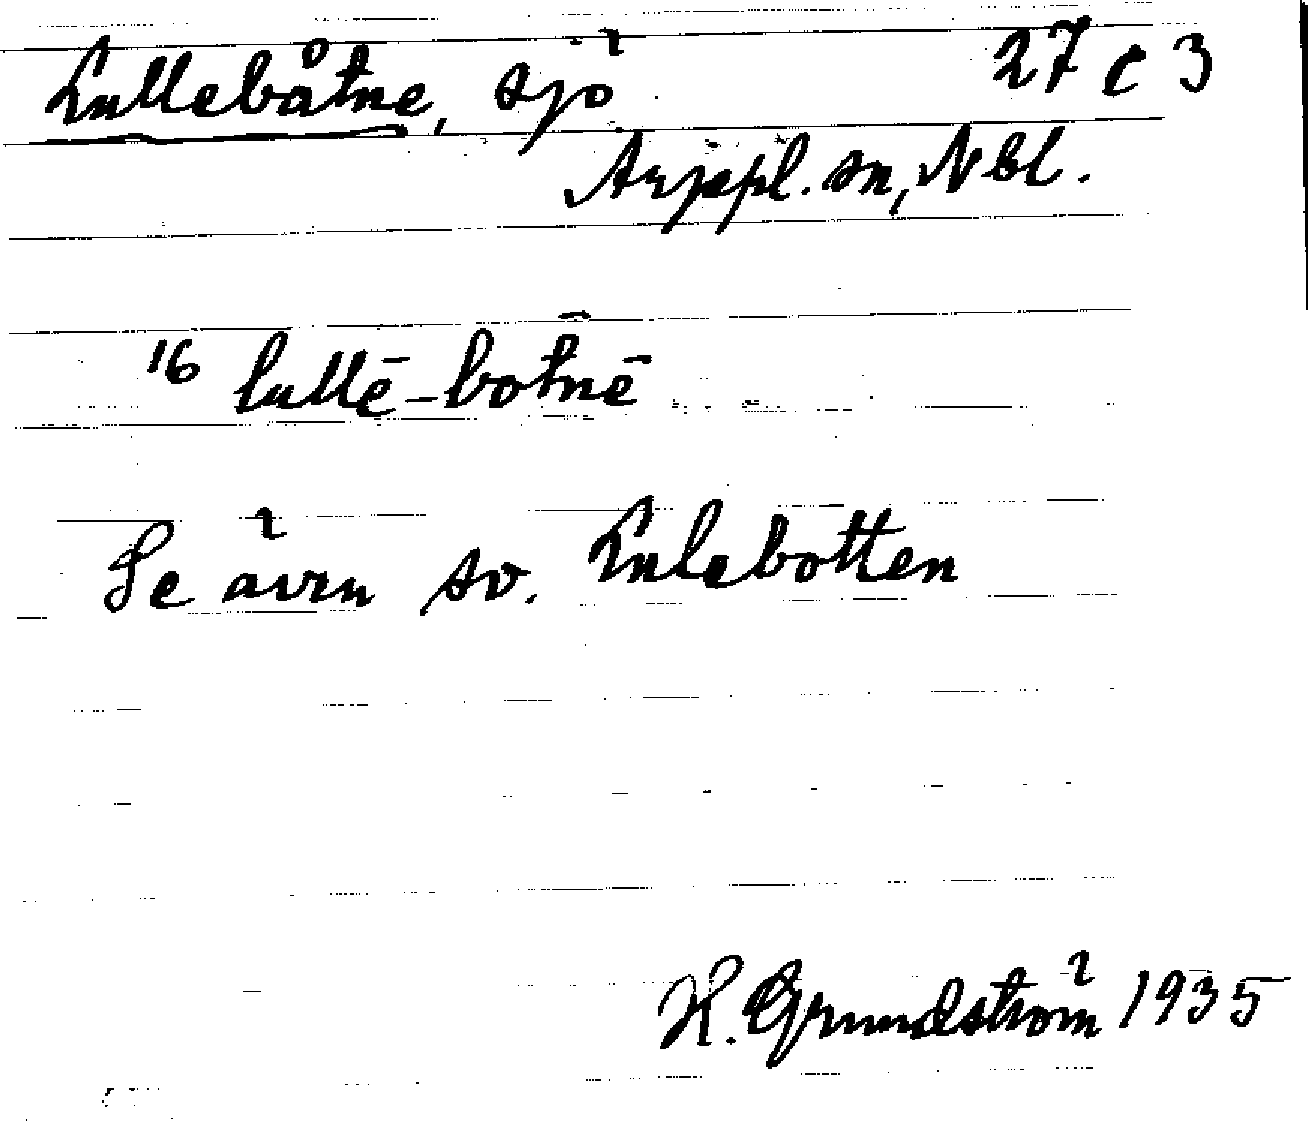 Lullebåtne, sjö 27 c 3
Arjepl. sn, Nbl.
16 lullē-botnē
Se även sv. Lulebotten
H. Grundström 1935